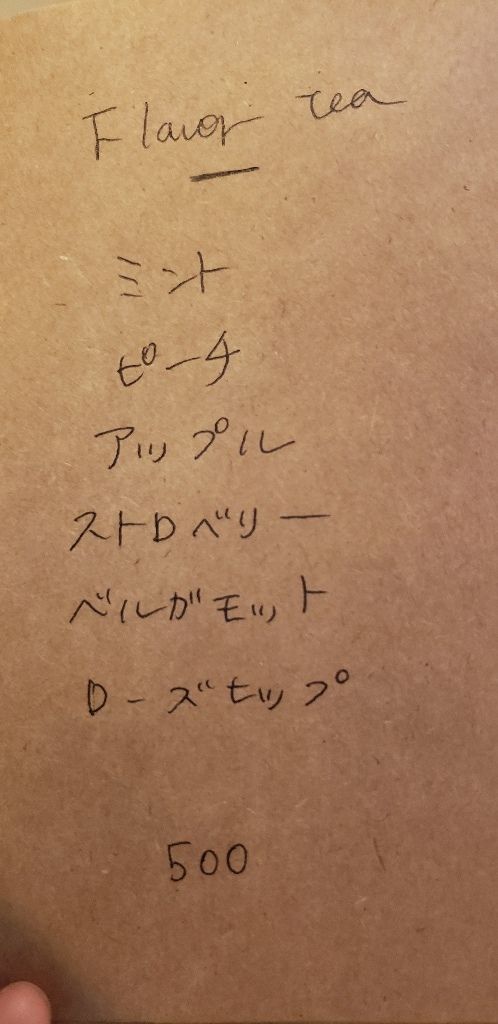 Flavor tea
ミント
ピーチ
アップル
ストロベリー
ベルガモット
ローズヒップ
500